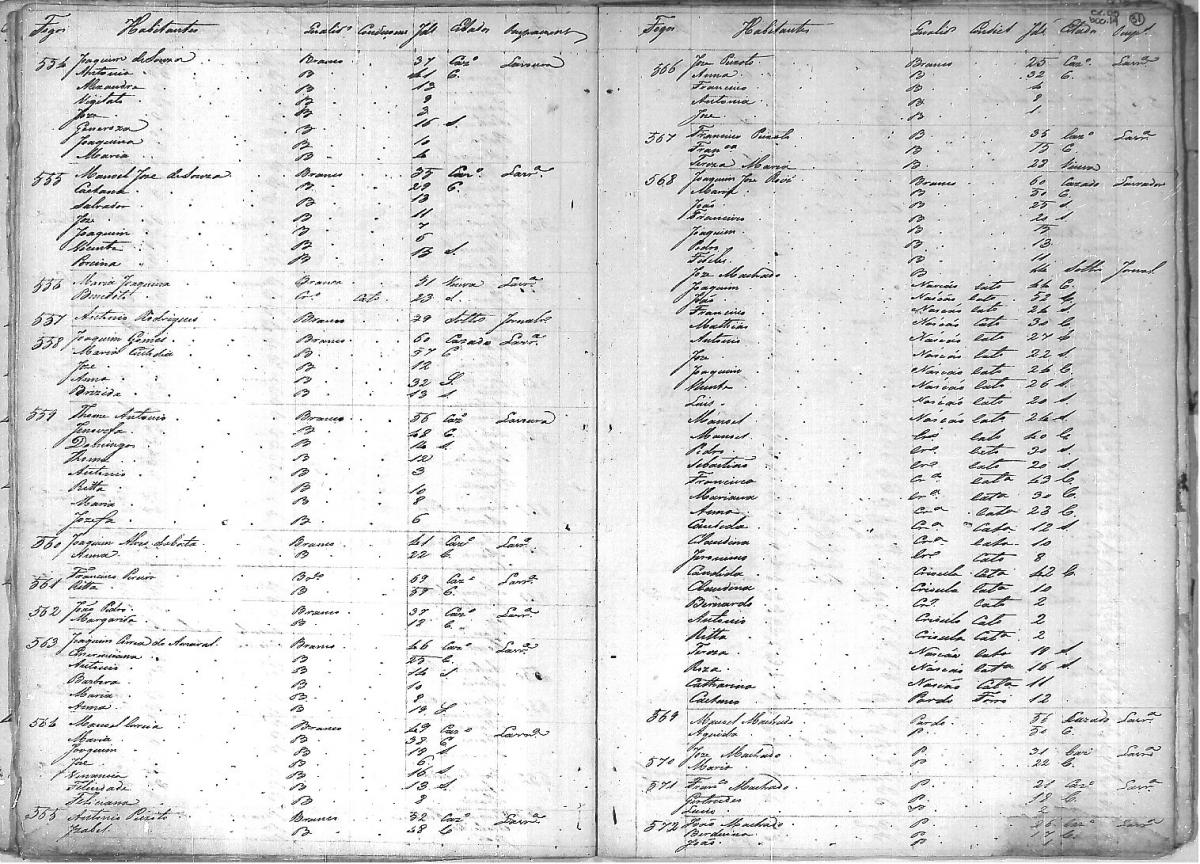 Fogos Habitantes Qualid.s Condiçoens Id.e Estados
554 Joaquim de Souza Branco 37 Caz.o Lavoura
Antonia B 41 C.
Alexandre B 13
B 9
Joze B 3
Generoza B 16 S.
Joaquina B 10
Maria B 4
555 Manoel Joze de Souza Branco 35 Caz.o Lavr.a
Caetana B 29 C.
Salvador B 13
Joze B 11
Joaquim B 7
Vicente B 6
B S.
556 Maria Joaquina Branca 51 Viuva Lavr.a
Benedito Cr.o Cat.o 23 S.
557 Antonio Rodrigues Branco 29 Solto Jornalr.o
558 Joaquim Gomes Branco 60 Cazado Lavr.a
Maria Custodia B 57 C
Joze B 12
Anna B 32 S.
Brizida B 13 S.
559 Thome Antonio Branco 56 Caz.o Lavoura
Genovefa B 48 C.
Domingos B 14 S.
Thome B 12
Antonio B 3
Ritta B 10
Maria B 8
Jozefa B 6
560 Joaquim Alves Branco 41 Caz.o Lavr.a
Anna B 22 C.
561 Francisco Pereira 69 Caz.o Lavr.a
Ritta B 59 C.
562 João Pedro Branco 37 Caz.o Lavr.a
Margarita B 12 C.
563 Joaquim de Amaral Branco 46 Caz.o Lavr.a
B 25 C.
Antonio B 14 S
Barbara B 10
Maria B 8
Anna B 19 S.
564 Manoel Correa Branco 49 Caz.o Lavour.a
Maria B 38 C
Joaquim B 19 S
Joze B 6
Venancia B 16 S.
Felicidade B 13 S.
Feliciana B 8
565 Antonio Peixoto Branco 52 Caz.o Lavr.a
Izabel B 38 C.
51
Fogos Habitantes Qualid.s Condic.t Id.e Estado Emp.o
566 Joze Peixoto Branco 25 Caz.o Lavr.a
Anna B 32 C.
Francisco B 4
Antonia B 2
Joze B 1
567 Francisco Peixoto B 35 Caz.o Lavr.a
Fran.ca B 15 C.
Tereza Maria B 28 Viuva
568 Joaquim Joze Branco 60 Cazado Lavrador
Maria B 50 C.
João B 25 S
Francisco B 20 S.
Joaquim B 15
Pedro B 13
Fideles B 11
Joze Machado B 44 Solto Jornal.
Joaquim Nação Cato 44 C.
João Nação Cato 52 C.
Francisco Nação Cato 24 S.
Mathias Nação Cato 30 C
Antonio Nação Cato 27 C
Joze Nação Cato 22 S
Joaquim Nação Cato 26 C
Vicente Nação Cato 26 S
Luis Nação Cato 20 S
Manoel Nação Cato 24 S
Manoel Cr.o Cato 40 C
Pedro Cr.o Cato 30 S
Sebastião Cr.o Cato 20 S
Francisca Cr.a Cata 43 C
Mariana Cr.a Cata 30 C.
Anna Cr.a Cata 23 C
Custodia Cr.a Cata 12 S
Claudina Cr.a Cata 10
Jeronimo Cr.o Cato 8
Candida Crioula Cata 42 C.
Claudina Crioula Cata 10
Bernardo Cr.o Cato 2
Antonio Crioulo Cato 2
Ritta Crioula Cata 2
Tereza Nação Cata 19 S
Roza Nação Cata 16 S.
Catharina Nação Cata 11
Caetano Pardo Forro 12
569 Manoel Machado Pardo 56 Cazado Lavr.a
Agueda P 50 C.
570 Joze Machado P. 31 Caz Lavr.a
Maria P. 22 C.
571 Fran.co Machado P. 21 Caz.o Lavr.a
Gertrudes P 18 C.
Luis P 2
572 João Machado P. 26 Caz.o Lavr.a
P. 17 C.
João P. 1